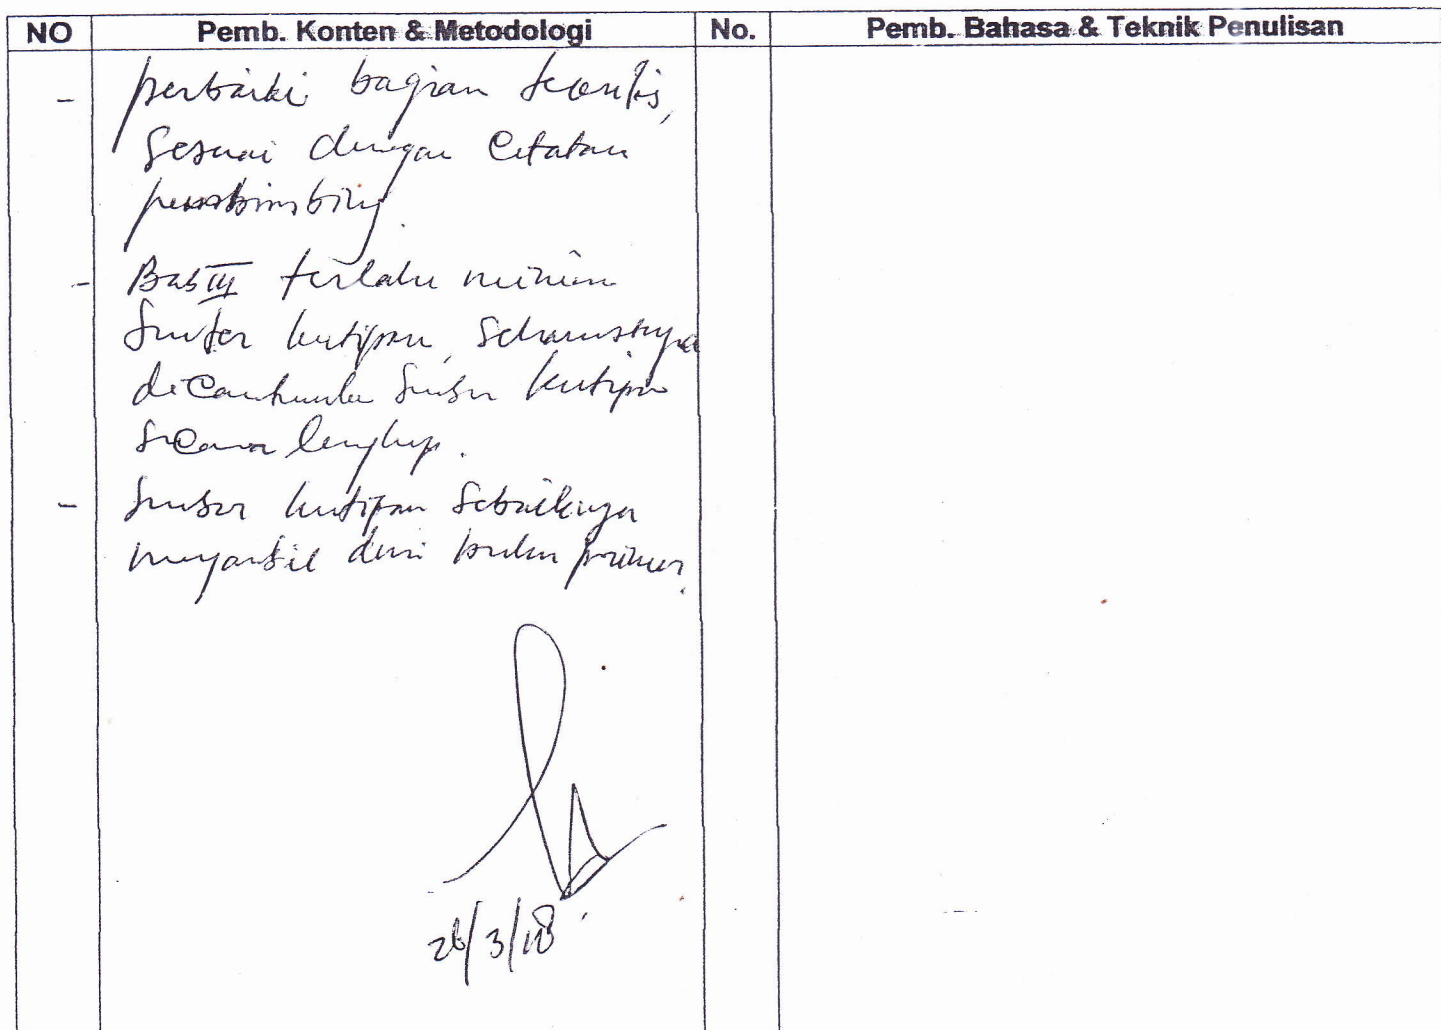 NO Pemb. Konten & Metodologi No. Pemb. Bahasa & Teknik Penulisan
- perbaiki bagian teoritis,
sesuai dengan catatan
pembimbing.
- Bab III terlalu minim
sumber kutipan, seharusnya
dicantumkan sumber kutipan
secara lengkap.
- sumber kutipan sebaiknya
mengambil dari buku primer.
26/3/18